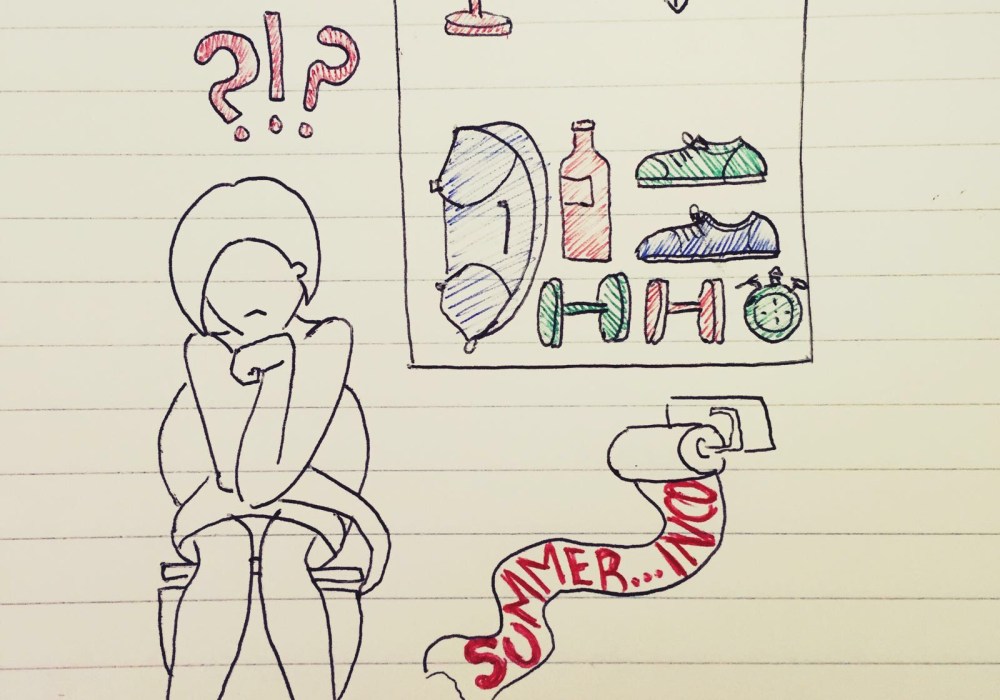 ?!?
SUMMER...INCO